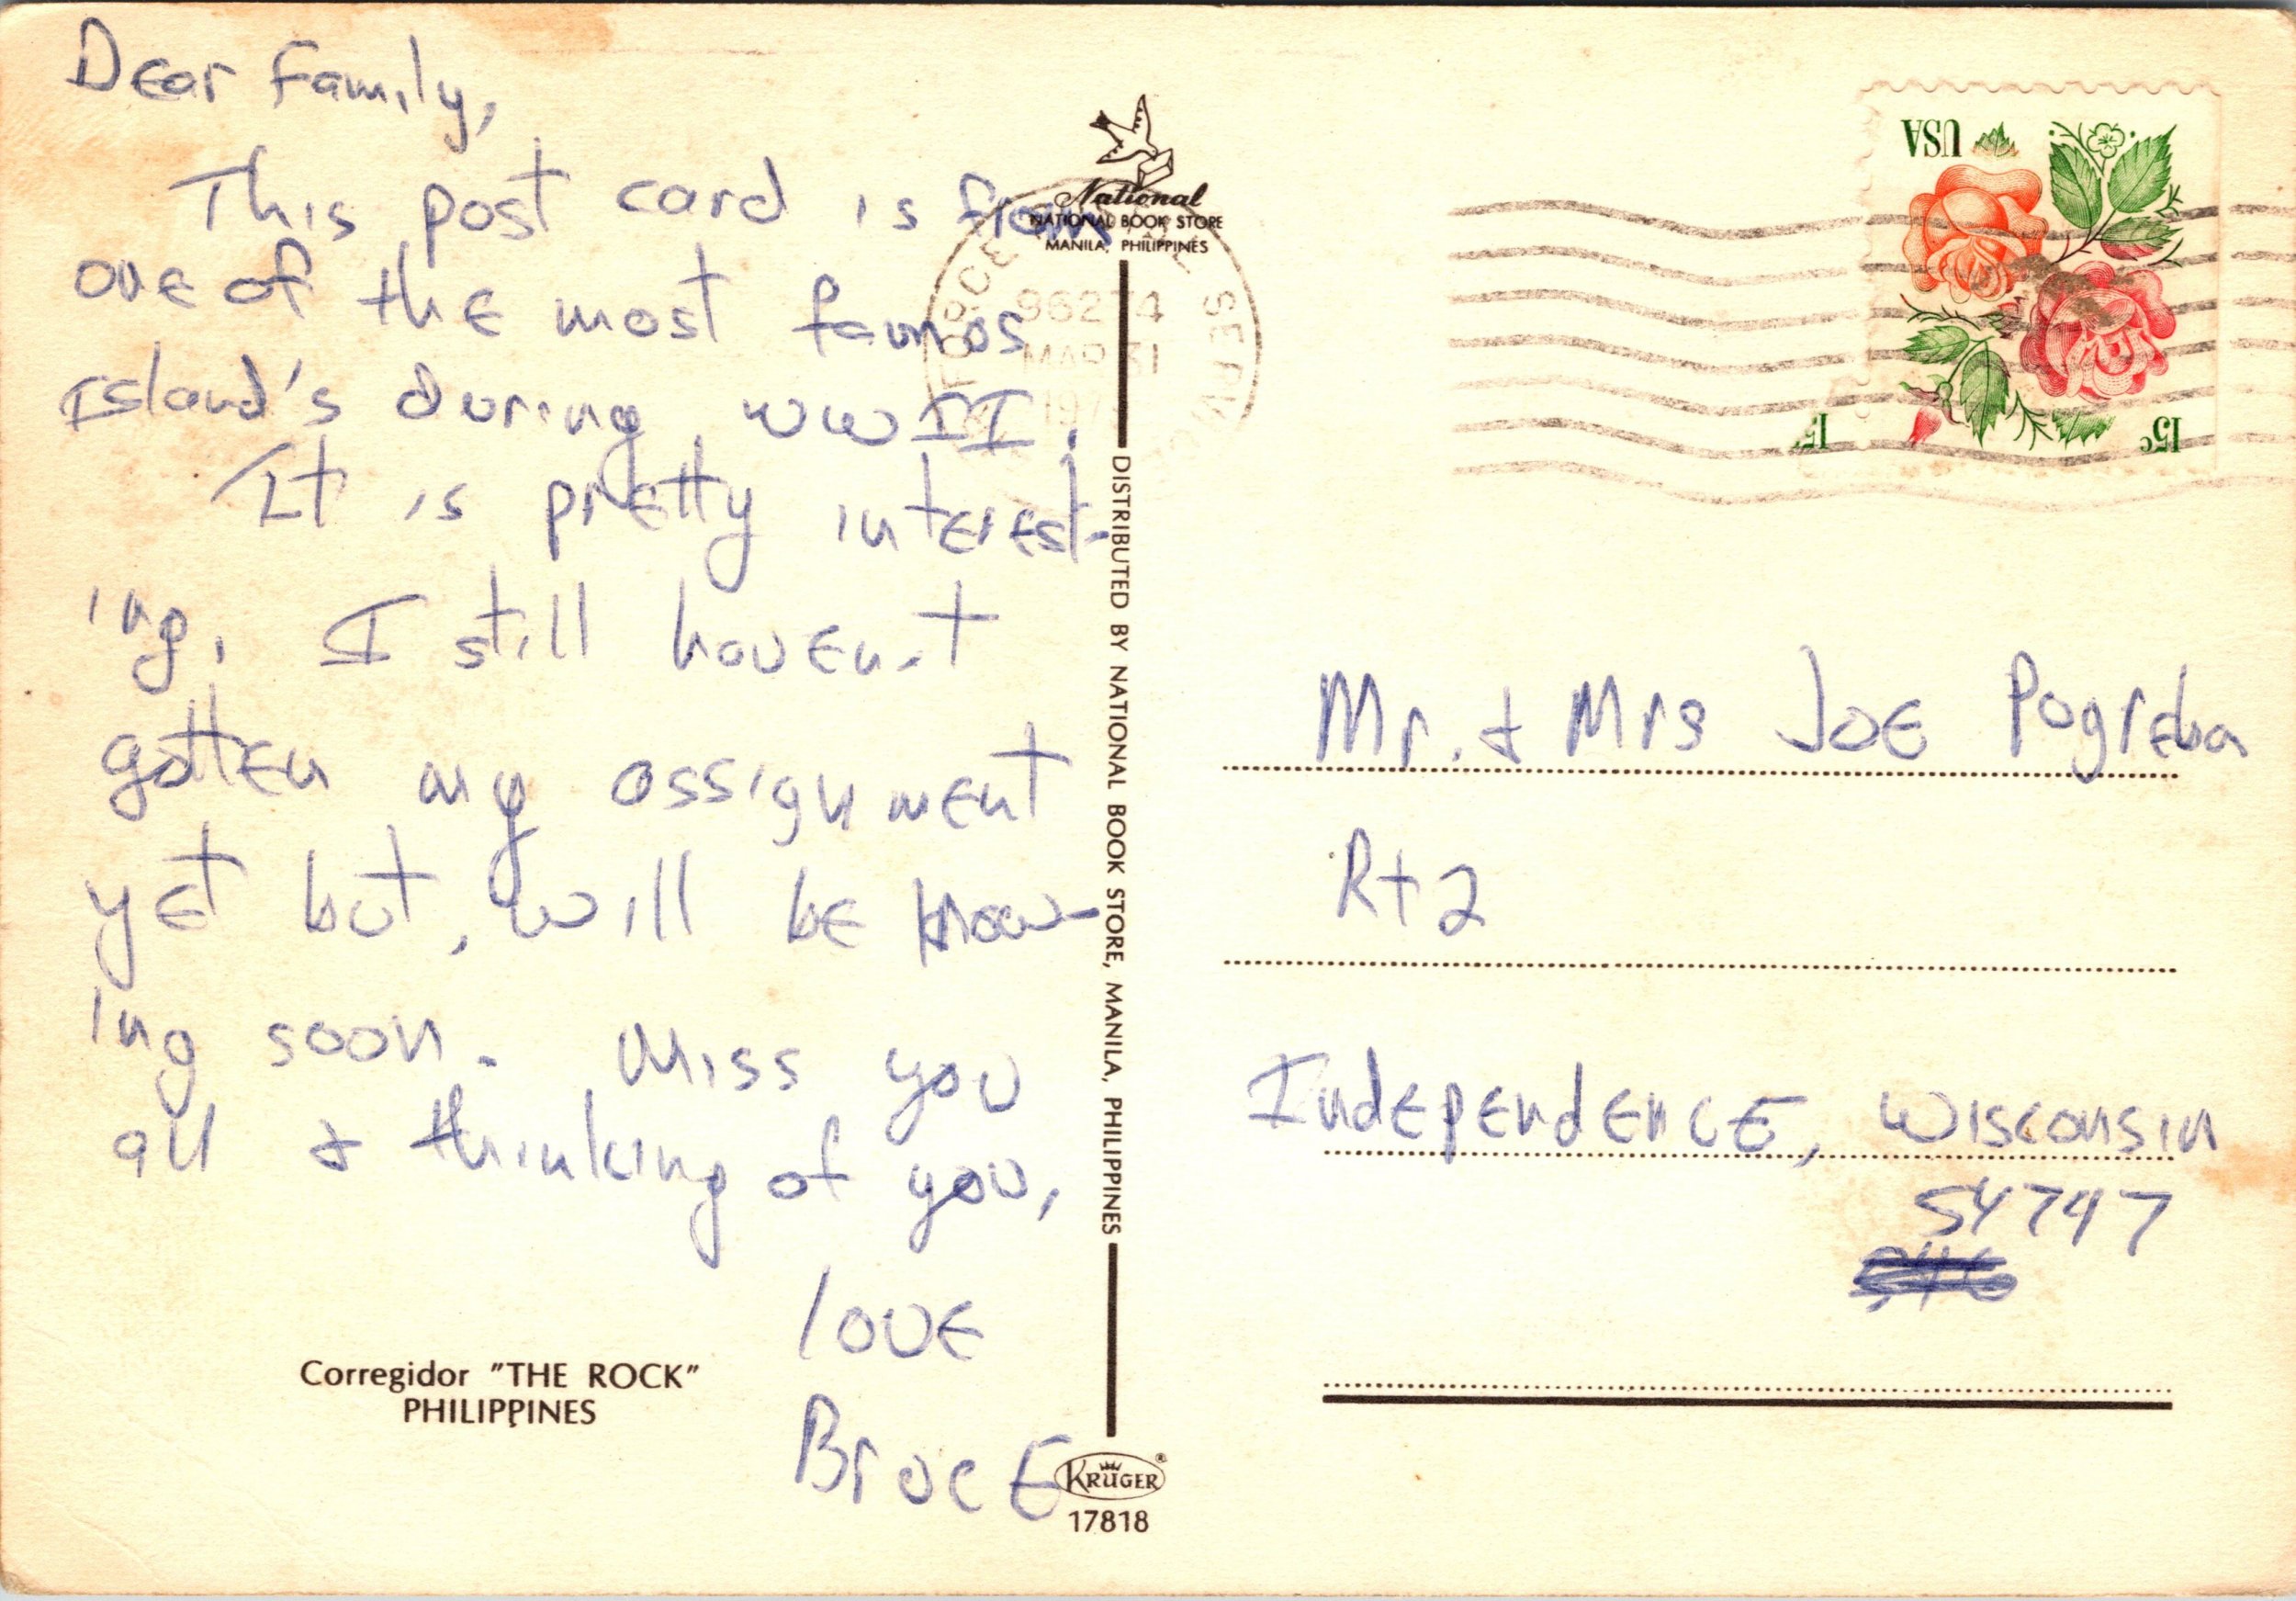 Dear Family,
This post card is from
one of the most famos
Island's during WWII.
It is pretty interest-
ing. I still haven't
gotten my assignment
yet but, will be know-
ing soon. Miss you
all & thinking of you,
love
Bruce
Corregidor "THE ROCK"
PHILIPPINES
National
NATIONAL BOOK STORE
MANILA, PHILIPPINES
MAR 31
DISTRIBUTED BY NATIONAL BOOK STORE, MANILA, PHILIPPINES
KRÜGER®
17818
USA
15c
Mr. & Mrs Joe Pogreba
Rt 2
Independence, Wisconsin
54747